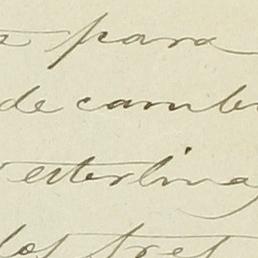 para
de camb
esterlina
tres